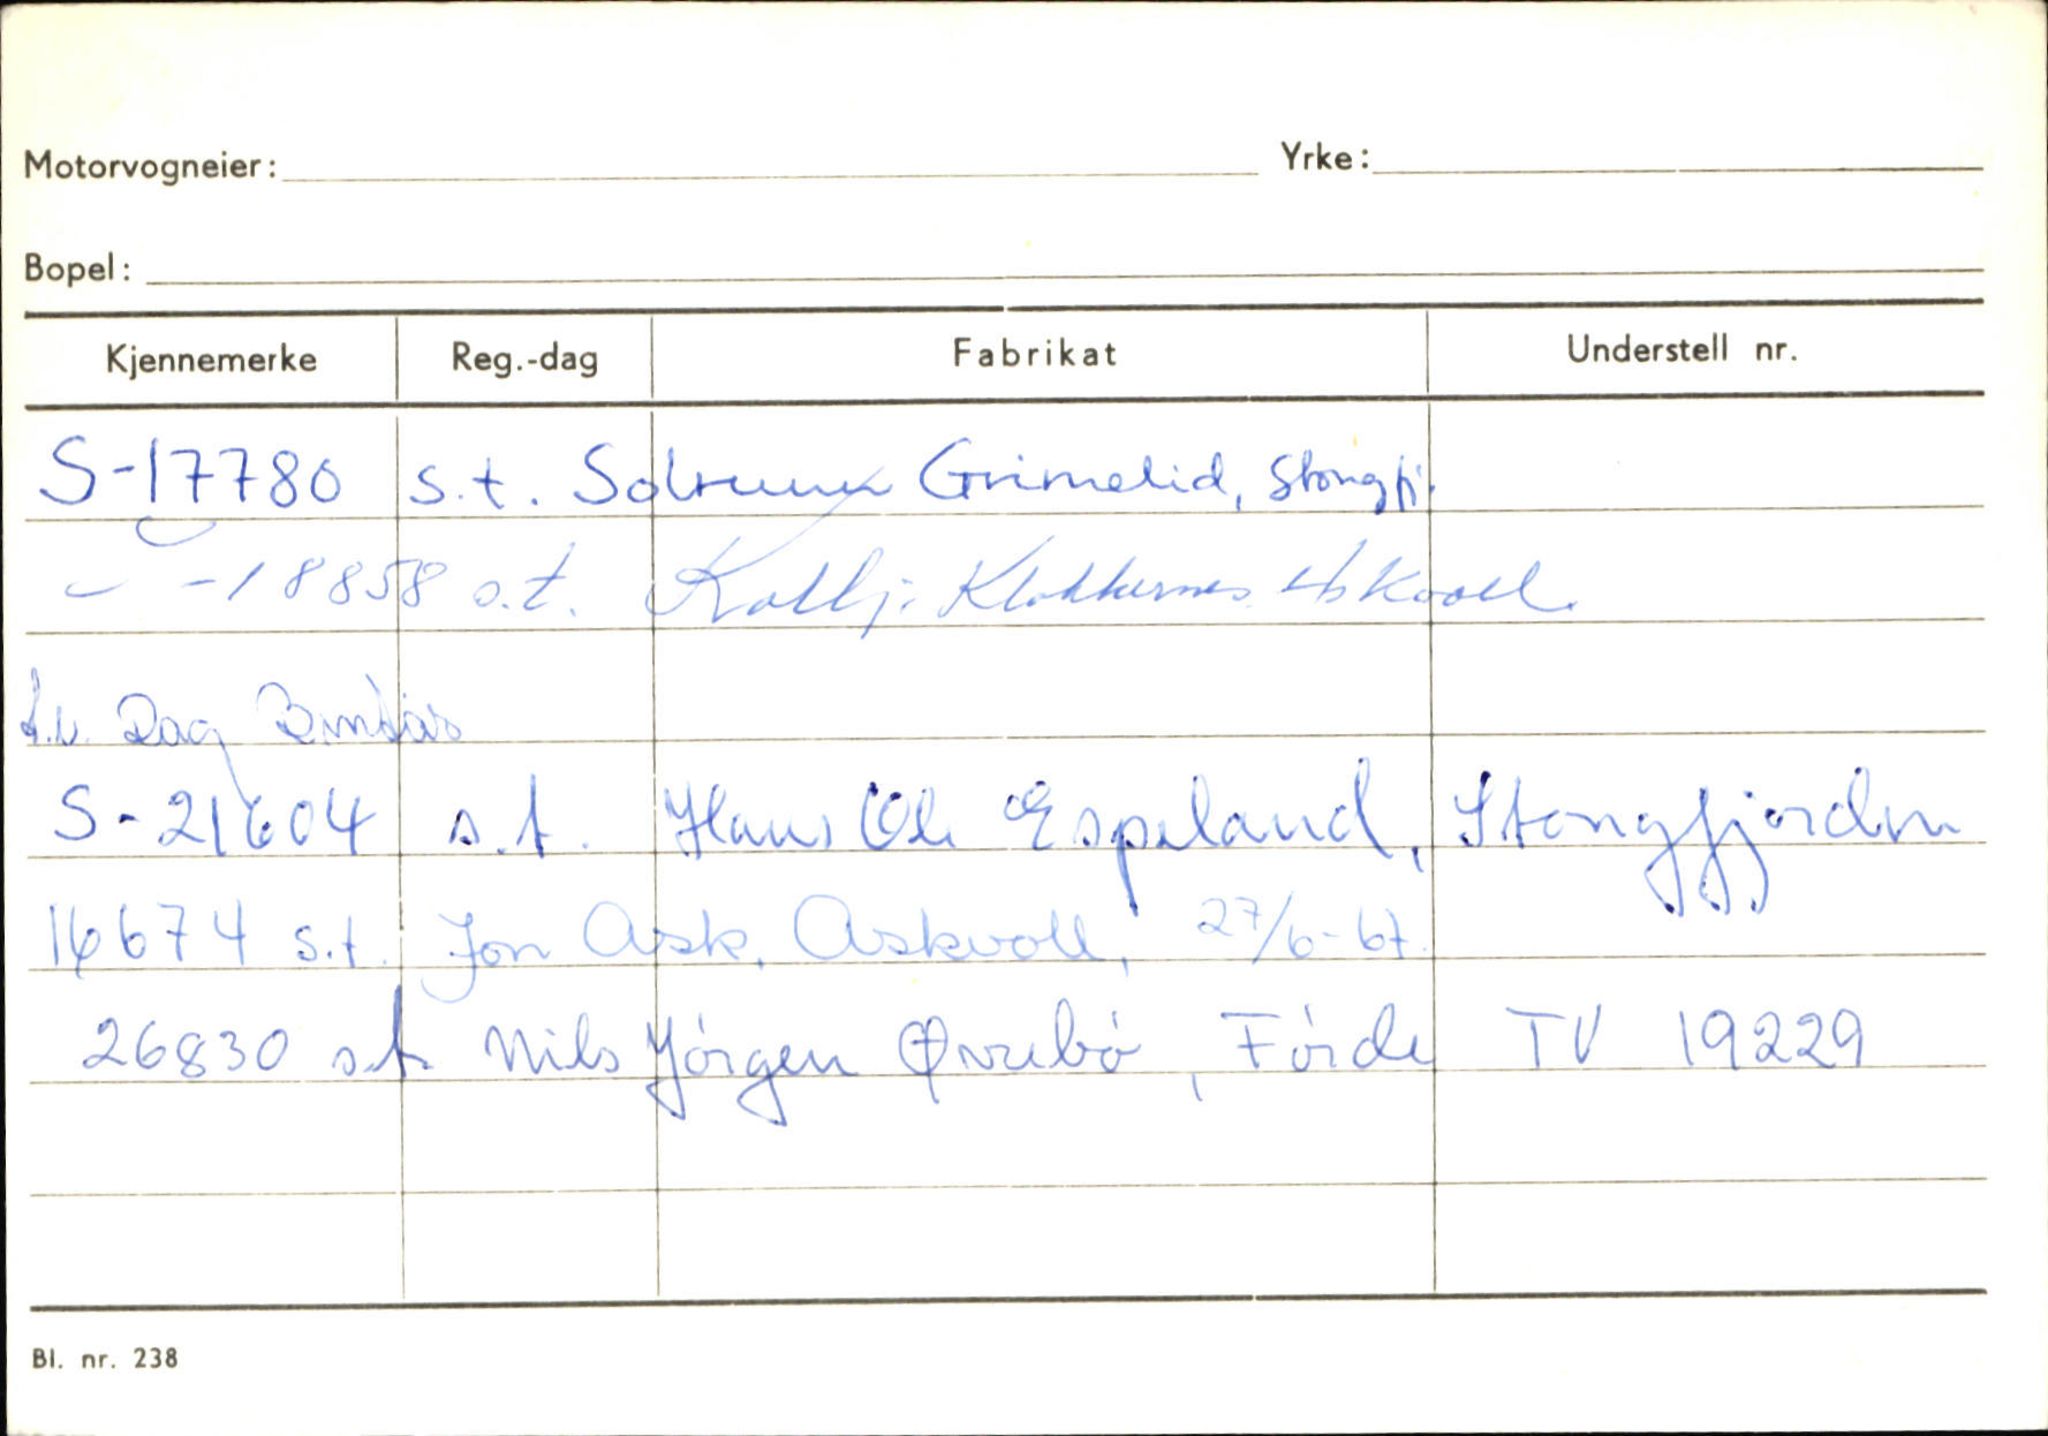 Motorvogneier: Yrke:
Bopel:
Kjennemerke Reg.-dag Fabrikat Understell nr.
S-17780 s.t. Solrunn Grimelid, Stongfj.
-18858 s.t. Kolbj. Klokkernes Askvoll.
Dag
S-21604 s.t. Hans Ole Espeland, Stongfjorden
16674 s.t. Jon Ask, Askvoll, 27/6-67.
26830 s.t. Nils Jörgen Øvrebö, Förde TV 19229
Bl. nr. 238